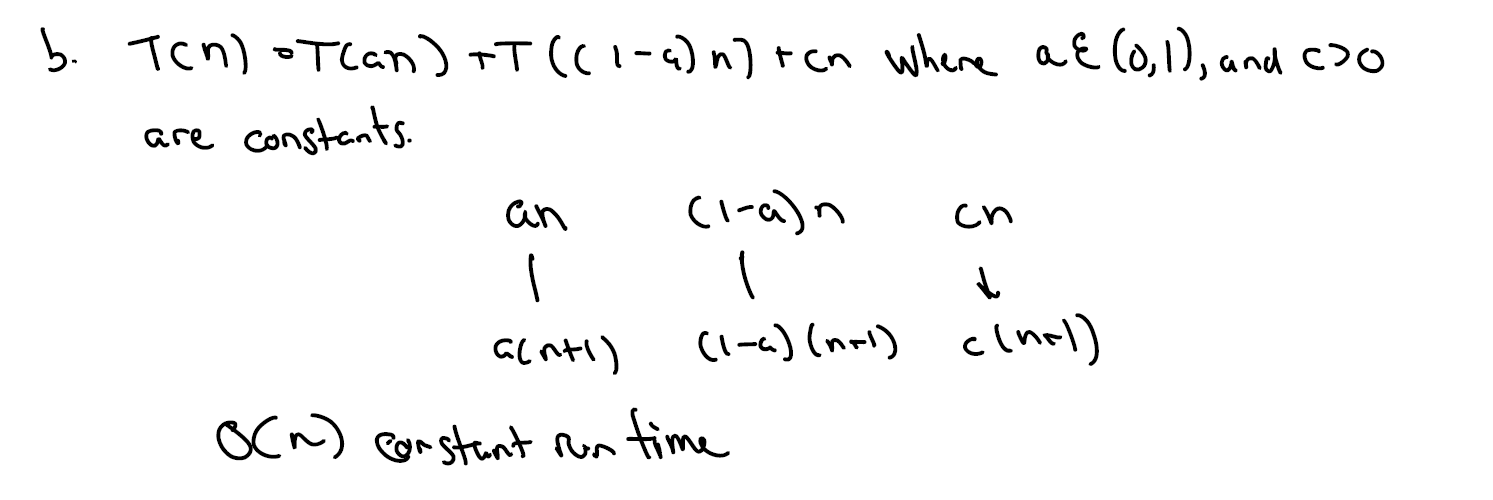 b. T(n) = T(an) + T((1-a)n) + cn where a ε (0,1), and c>0
are constants.
an (1-a)n cn
a(n+1) (1-a)(n+1) c(n+1)
O(n) constant run time